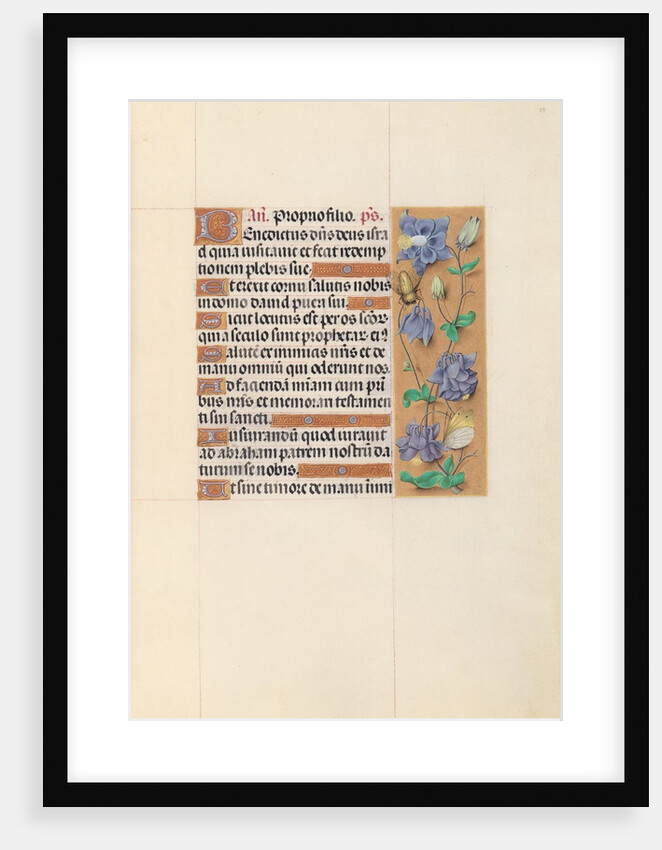 Añ. Proprio filio. p̃s.
Benedictus dñs deus isra
el quia uisitauit et fecit redemp
tionem plebis sue.
Et erexit cornu salutis nobis
in domo dauid pueri sui.
Sicut locutus est per os scõr
qui a seculo sunt prophetar ei9
Salutē ex inimicis nr̃is et de
manu omniū qui oderunt nos.
Ad faciendā mīam cum pr̃i
bus nr̃is et memorari testamen
ti sui sancti.
Iusiurandū quod iurauit
ad abraham patrem nostrū da
turum se nobis.
Ut sine timore de manu inimi